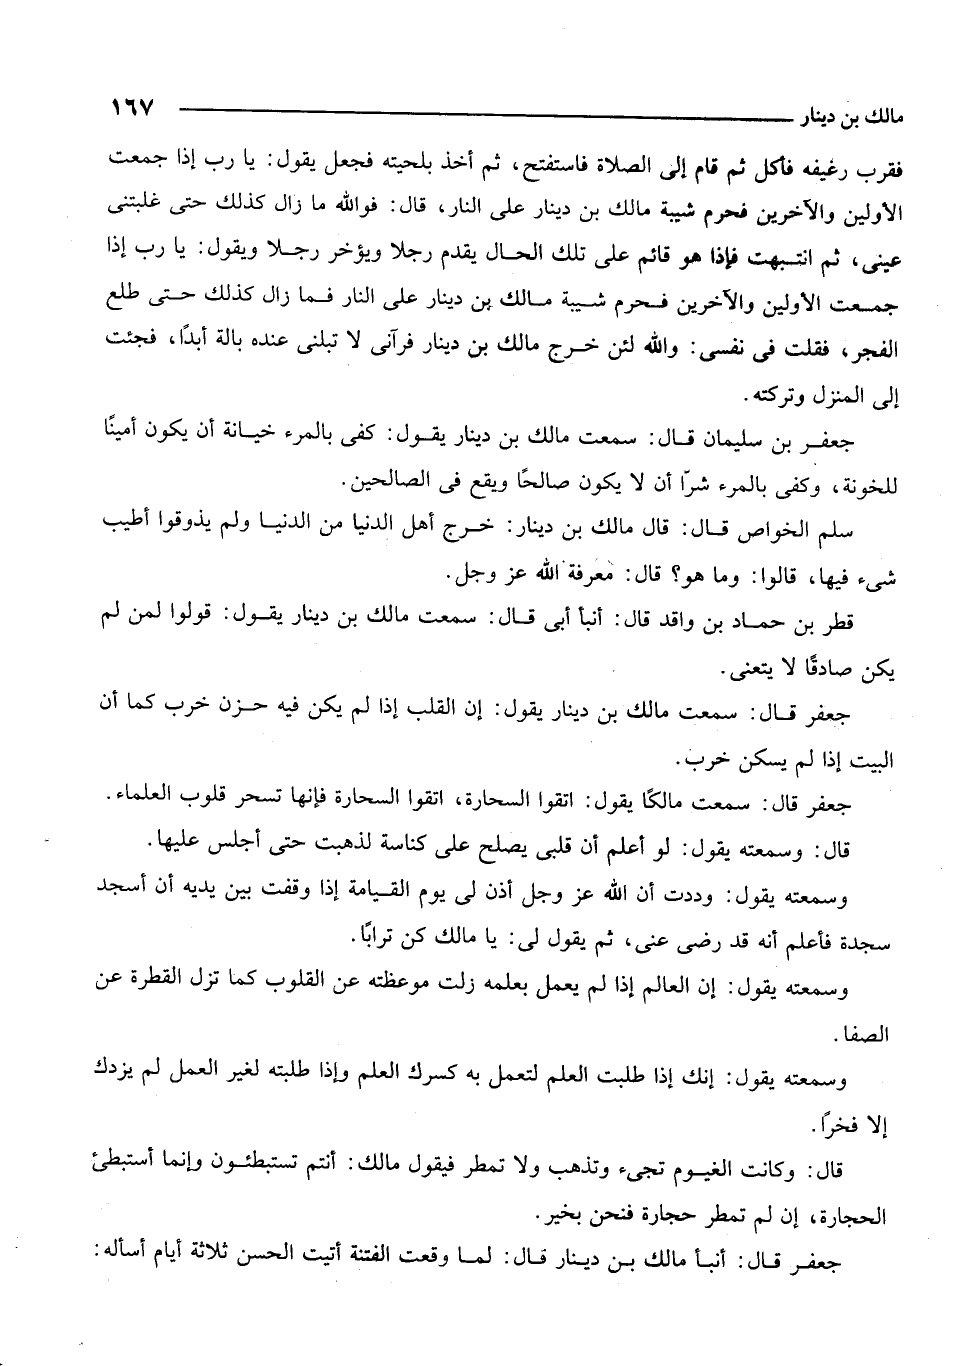 مالك بن دينار ١٦٧
فقرب رغيفه فأكل ثم قام إلى الصلاة فاستفتح، ثم أخذ بلحيته فجعل يقول: يا رب إذا جمعت
الأولين والآخرين فحرم شيبة مالك بن دينار على النار، قال: فوالله ما زال كذلك حتى غلبتنى
عينى، ثم انتبهت فإذا هو قائم على تلك الحال يقدم رجلا ويؤخر رجلا ويقول: يا رب إذا
جمعت الأولين والآخرين فحرم شيبة مالك بن دينار على النار فما زال كذلك حتى طلع
الفجر، فقلت فى نفسى: والله لئن خرج مالك بن دينار فرآنى لا تبلنى عنده بالة أبدًا، فجئت
إلى المنزل وتركته.
جعفر بن سليمان قال: سمعت مالك بن دينار يقول: كفى بالمرء خيانة أن يكون أمينًا
للخونة، وكفى بالمرء شرًا أن لا يكون صالحًا ويقع فى الصالحين.
سلم الخواص قال: قال مالك بن دينار: خرج أهل الدنيا من الدنيا ولم يذوقوا أطيب
شىء فيها، قالوا: وما هو؟ قال: معرفة الله عز وجل.
قطر بن حماد بن واقد قال: أنبأ أبى قال: سمعت مالك بن دينار يقول: قولوا لمن لم
يكن صادقًا لا يتعنى.
جعفر قال: سمعت مالك بن دينار يقول: إن القلب إذا لم يكن فيه حزن خرب كما أن
البيت إذا لم يسكن خرب.
جعفر قال: سمعت مالكًا يقول: اتقوا السحارة، اتقوا السحارة فإنها تسحر قلوب العلماء.
قال: وسمعته يقول: لو أعلم أن قلبى يصلح على كناسة لذهبت حتى أجلس عليها.
وسمعته يقول: وددت أن الله عز وجل أذن لى يوم القيامة إذا وقفت بين يديه أن أسجد
سجدة فأعلم أنه قد رضى عنى، ثم يقول لى: يا مالك كن ترابًا.
وسمعته يقول: إن العالم إذا لم يعمل بعلمه زلت موعظته عن القلوب كما تزل القطرة عن
الصفا.
وسمعته يقول: إنك إذا طلبت العلم لتعمل به كسرك العلم وإذا طلبته لغير العمل لم يزدك
إلا فخرًا.
قال: وكانت الغيوم تجىء وتذهب ولا تمطر فيقول مالك: أنتم تستبطئون وإنما أستبطئ
الحجارة، إن لم تمطر حجارة فنحن بخير.
جعفر قال: أنبأ مالك بن دينار قال: لما وقعت الفتنة أتيت الحسن ثلاثة أيام أسأله: